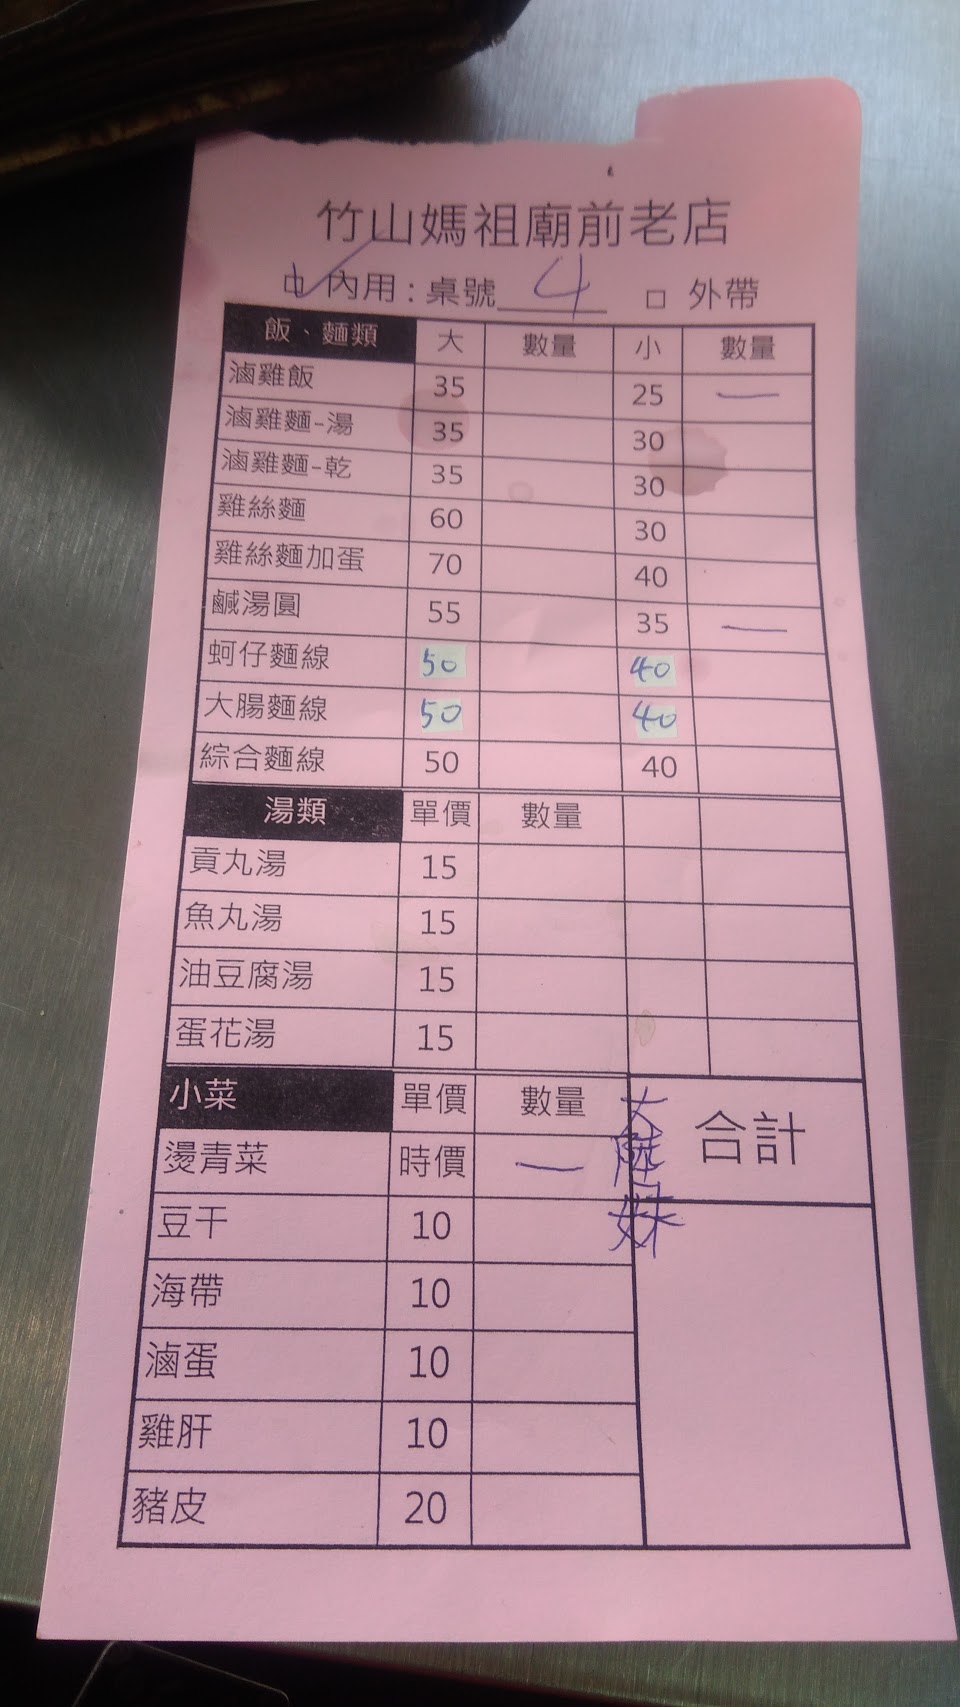 竹山媽祖廟前老店
☑ 內用：桌號 4 □ 外帶
飯、麵類 大 數量 小 數量
滷雞飯 35 25 一
滷雞麵-湯 35 30
滷雞麵-乾 35 30
雞絲麵 60 30
雞絲麵加蛋 70 40
鹹湯圓 55 35 一
蚵仔麵線 50 40
大腸麵線 50 40
綜合麵線 50 40
湯類 單價 數量
貢丸湯 15
魚丸湯 15
油豆腐湯 15
蛋花湯 15
小菜 單價 數量 合計
燙青菜 時價 一 大陸妹
豆干 10
海帶 10
滷蛋 10
雞肝 10
豬皮 20